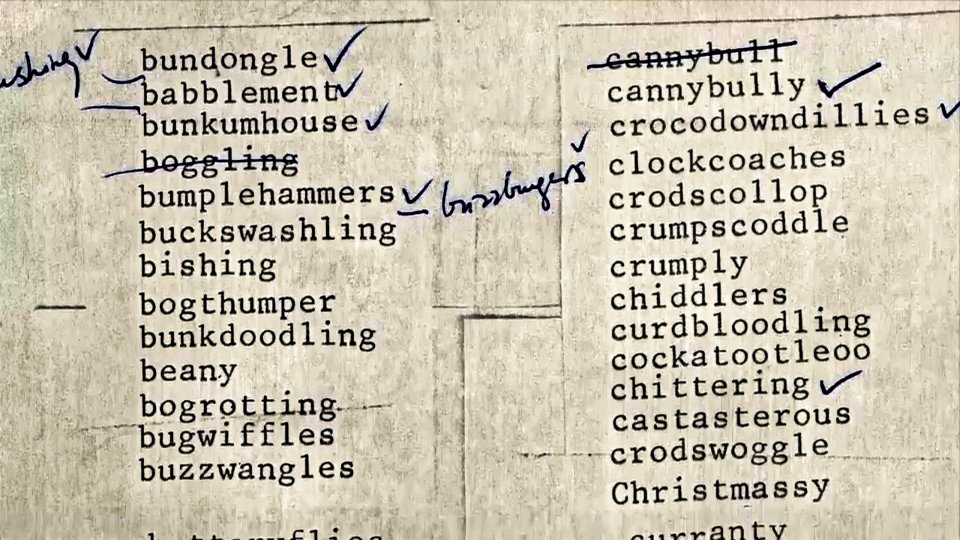 bundongle
babblement
bunkumhouse
boggling
bumplehammers
buzzburgers
buckswashling
bishing
bogthumper
bunkdoodling
beany
bogrotting
bugwiffles
buzzwangles
cannybull
cannybully
crocodowndillies
clockcoaches
crodscollop
crumpscoddle
crumply
chiddlers
curdbloodling
cockatootleoo
chittering
castasterous
crodswoggle
Christmassy
curranty